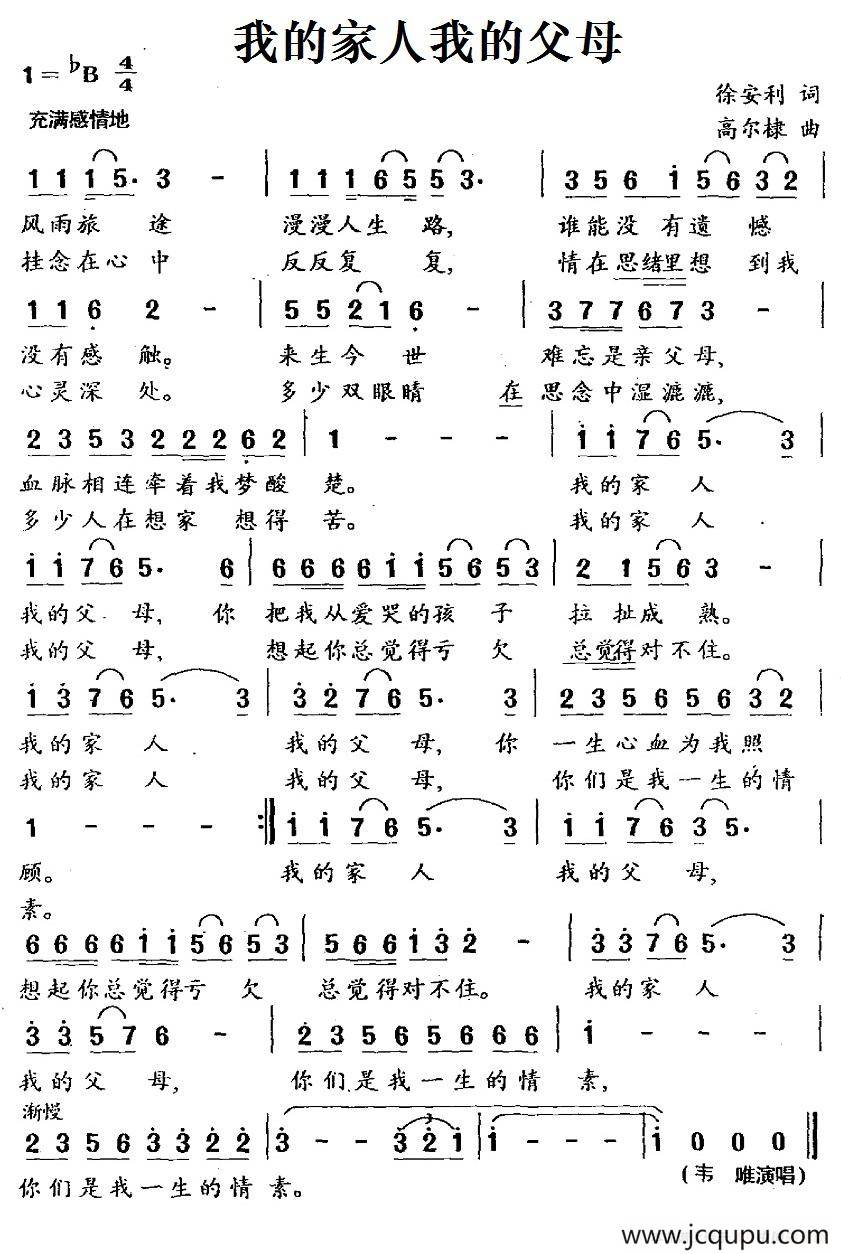 我的家人我的父母
1=♭B 4/4
徐安利 词
充满感情地
高尔棣 曲
1 1 1 5· 3 - | 1 1 1 6 5 5 3· | 3 5 6 i 5 6 3 2
风雨旅 途 漫漫人生路, 谁能没 有遗 憾
挂念在心中 反反复 复, 情在思绪里想 到我
1 1 6 2 - | 5 5 2 1 6 - | 3 7 7 6 7 3 -
没有感 触。 来生今 世 难忘是亲父母,
心灵深 处。 多少双眼睛 在思念中湿漉漉,
2 3 5 3 2 2 2 6 2 | 1 - - - | i i 7 6 5· 3
血脉相连牵着我梦酸 楚。 我的家 人
多少人在想家 想得 苦。 我的家 人
i i 7 6 5· 6 | 6 6 6 6 i i 5 6 5 3 | 2 1 5 6 3 -
我的父 母, 你 把我从爱哭的孩 子 拉扯成 熟。
我的父 母, 想起你总觉得亏 欠 总觉得对不住。
1 3 7 6 5· 3 | 3 2 7 6 5· 3 | 2 3 5 6 5 6 3 2
我的家 人 我的父 母, 你 一生心血为我照
我的家 人 我的父 母, 你们是我一生的情
1 - - - :‖ i i 7 6 5· 3 | i i 7 6 3 5·
顾。 我的家 人 我的父 母,
素。
6 6 6 6 i i 5 6 5 3 | 5 6 6 i 3 2 - | 3 3 7 6 5· 3
想起你总觉得亏 欠 总觉得对不住。 我的家 人
3 3 5 7 6 - | 2 3 5 6 5 6 6 6 | i - - -
我的父 母, 你们是我一生的情 素,
渐慢
2 3 5 6 3 3 2 2 | 3 - - 3 2 i | i - - - | i 0 0 0 ‖
你们是我一生的情 素。
(韦 唯演唱)
www.jcqupu.com